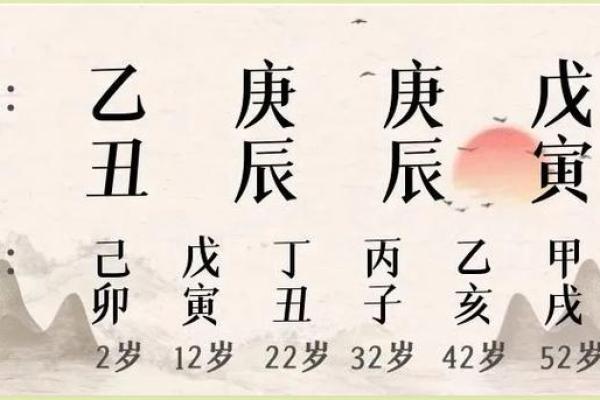 ： 乙 庚 庚 戊
丑 辰 辰 寅
： 己 戊 丁 丙 乙 甲
卯 寅 丑 子 亥 戌
2岁 12岁 22岁 32岁 42岁 52岁